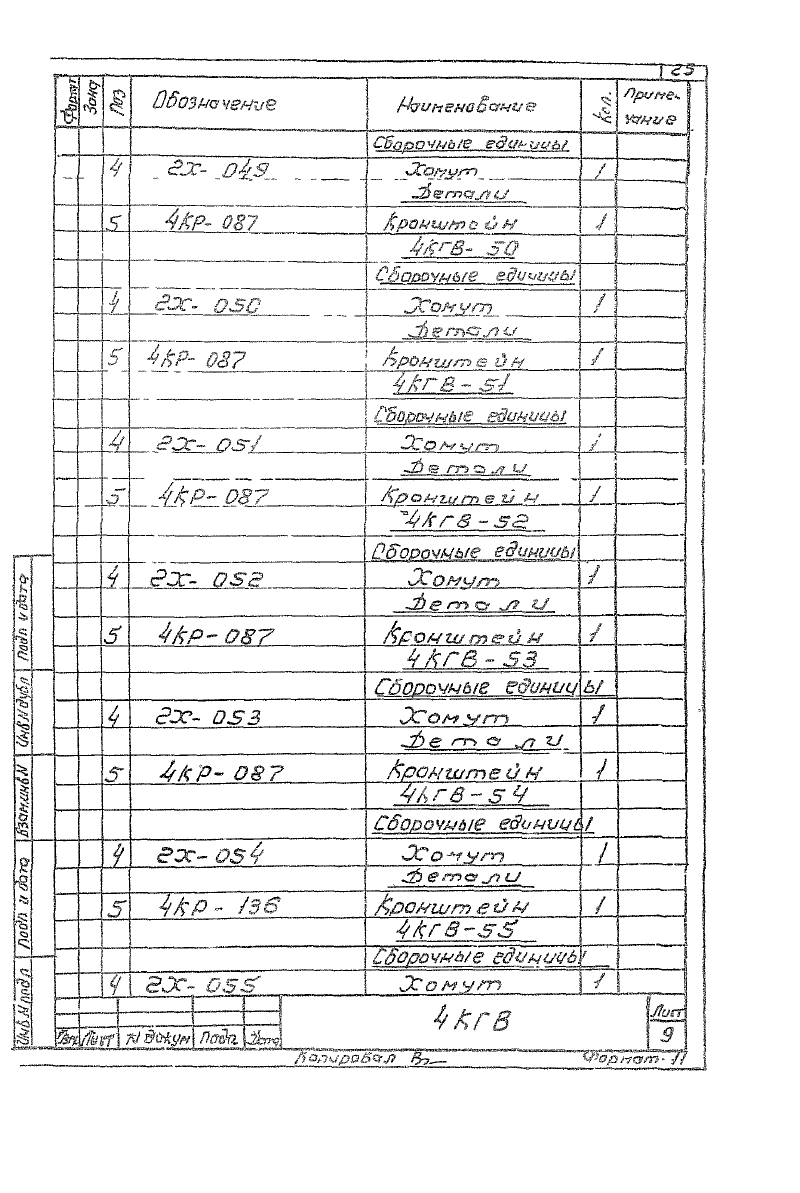 25
Формат Зона Поз Обозначение Наименование Кол. Приме-
чание
Сборочные единицы
4 2Х- 049 Хомут 1
Детали
5 4КР- 087 Кронштейн 1
4КГВ- 50
Сборочные единицы
4 2Х- 050 Хомут 1
Детали
5 4КР- 087 Кронштейн 1
4КГВ-51
Сборочные единицы
4 2Х- 051 Хомут 1
Детали
5 4КР-087 Кронштейн 1
4КГВ-52
Сборочные единицы
4 2Х- 052 Хомут 1
Детали
5 4КР-087 Кронштейн 1
4КГВ-53
Сборочные единицы
4 2Х- 053 Хомут 1
Детали
5 4КР- 087 Кронштейн 1
4КГВ-54
Сборочные единицы
4 2Х-054 Хомут 1
Детали
5 4КР - 136 Кронштейн 1
4КГВ-55
Сборочные единицы
4 2Х- 055 Хомут 1
Подп и дата
Инв.N дубл
Взам.инв N
Подп и дата
Инв.N подл
Изм Лист N докум Подп. Дата
4КГВ
Лист
9
Копировал Формат 11